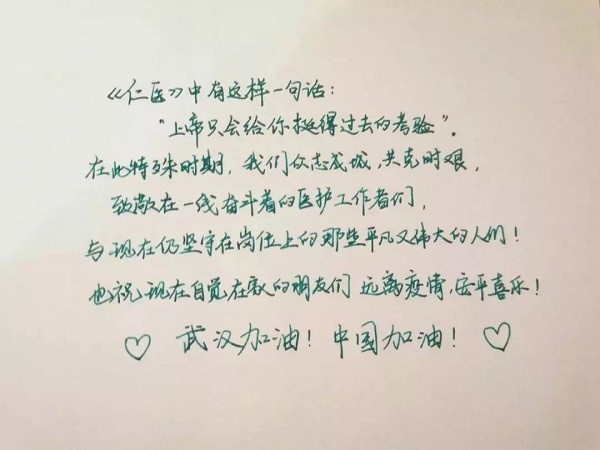 《仁医》中有这样一句话：
“上帝只会给你挺得过去的考验”。
在此特殊时期，我们众志成城，共克时艰，
致敬在一线奋斗着的医护工作者们，
与现在仍坚守在岗位上的那些平凡又伟大的人们！
也祝现在自觉在家的朋友们 远离疫情，安平喜乐！
♡ 武汉加油！中国加油！♡